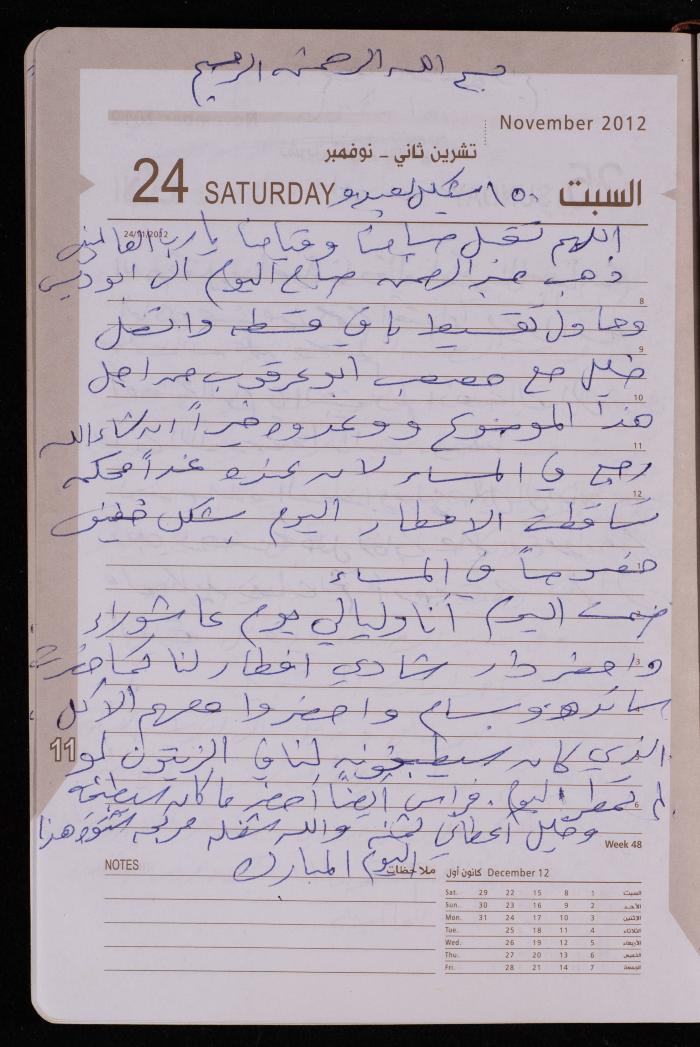 بسم الله الرحمن الرحيم
November 2012
تشرين ثاني - نوفمبر
24 SATURDAY ١٥٠ شيكل لعبيدو السبت
24/11/2012
اللهم تقبل صيامنا وقيامنا يا رب العالمين
ذهب عبد الرحمن صباح اليوم الى ابو ديس
وحاول تقسيط باقي قسطه واتصل
خليل مع مصعب ابو عرقوب من اجل
هذا الموضوع ووعدوه خيراً ان شاء الله
رجع في المساء لان عنده غداً محكمة
تساقطت الأمطار اليوم بشكل خفيف
خصوصاً في المساء
صمت اليوم أنا وليالي يوم عاشوراء
واحضر دار شادي افطار لنا كما حضرت
سائدة وبسام واحضروا معهم الاكل
الذي كان سيطبخونه لنا في الزيتون لو
لم تمطر اليوم. فراس أيضاً أحضر ما كان سيطبخه
وخليل أعطاني ثمنه والله شغله مربحة هذا
اليوم المبارك
8
9
10
11
12
1
2
3
4
5
6
11
Week 48
NOTES ملاحظات
كانون أول December 12
Sat. 29 22 15 8 1 السبت
Sun. 30 23 16 9 2 الأحد
Mon. 31 24 17 10 3 الاثنين
Tue. 25 18 11 4 الثلاثاء
Wed. 26 19 12 5 الأربعاء
Thu. 27 20 13 6 الخميس
Fri. 28 21 14 7 الجمعة